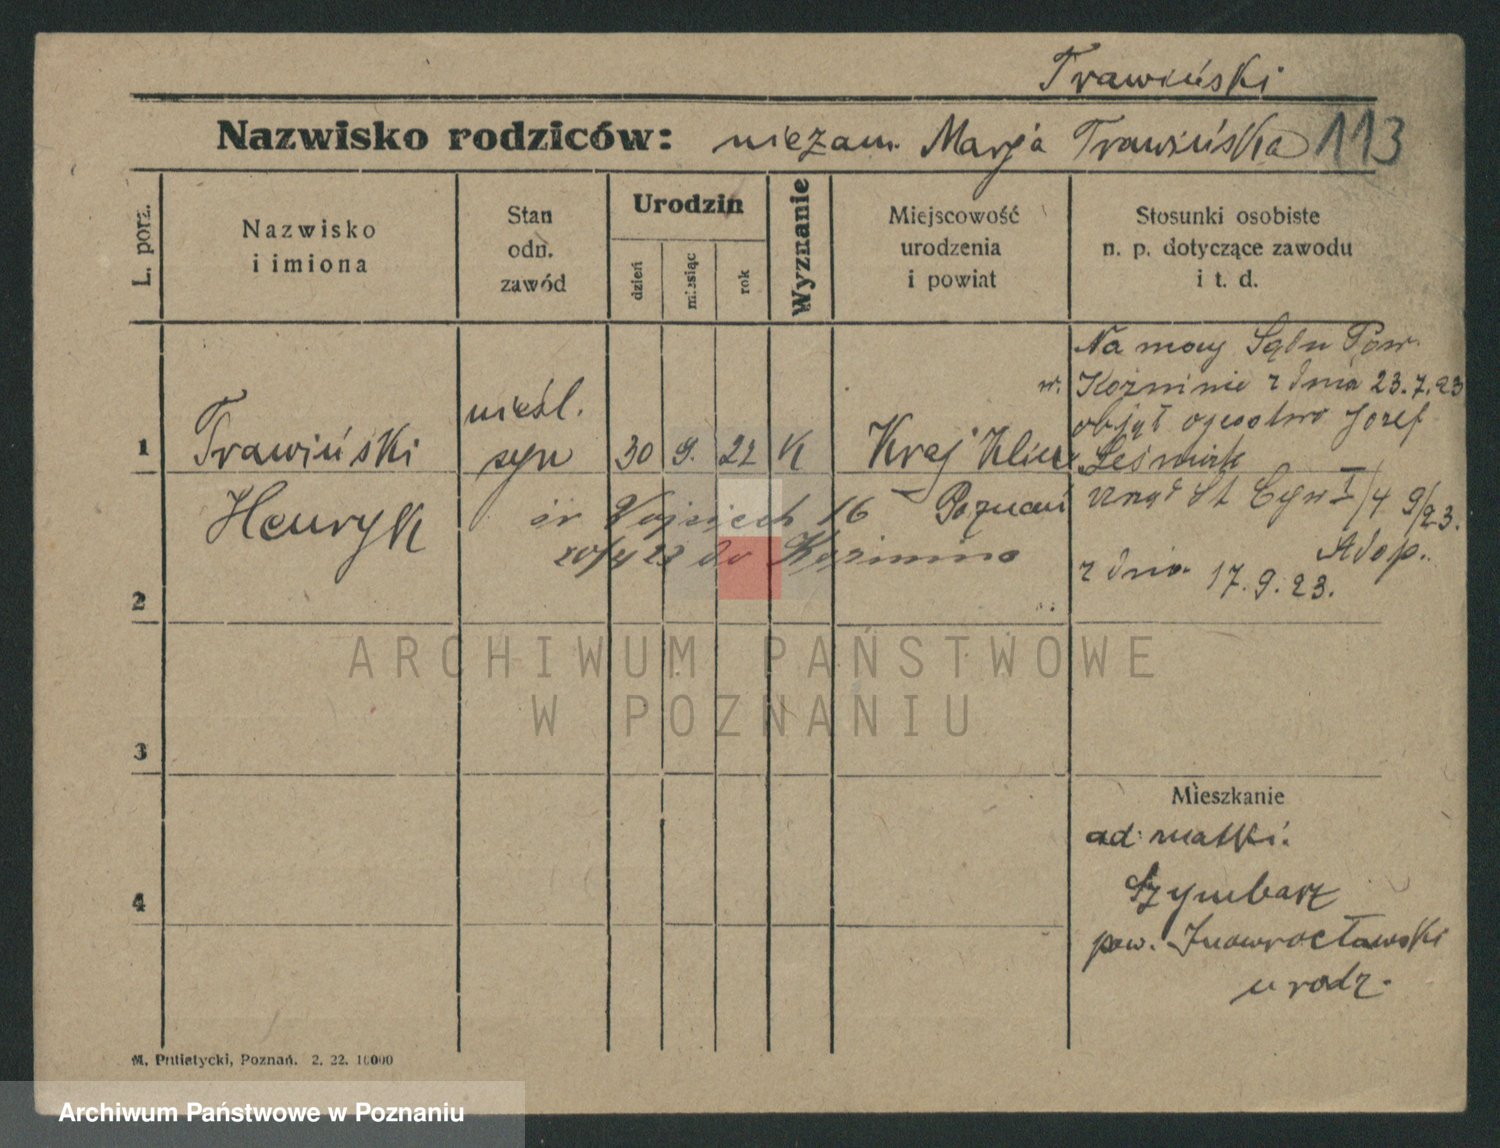 Trawiński
Nazwisko rodziców: niezam. Marja Trawińska 113
L. porz.
Nazwisko
i imiona
Stan
odn.
zawód
Urodzin
dzień
miesiąc
rok
Wyznanie
Miejscowość
urodzenia
i powiat
Stosunki osobiste
n. p. dotyczące zawodu
i t. d.
Na mocy Sądu Pow.
w. Koźminie z dnia 23.7.23
objął ojcostwo Jozef
Leśniak
1 Trawiński nieśl. syn 30 9. 22 K Kraj Klin
Henryk
św Wojciech 16 Poznań
20/4 23 do Koźmina
St Cyw I/4 9/23.
Adop.
z dnia 17.9.23.
2
ARCHIWUM PAŃSTWOWE
W POZNANIU
3
Mieszkanie
ad matki.
4
Szymbarz
pow. Inowrocławski
urodz.
M. Putiatycki, Poznań. 2. 22. 10000
Archiwum Państwowe w Poznaniu